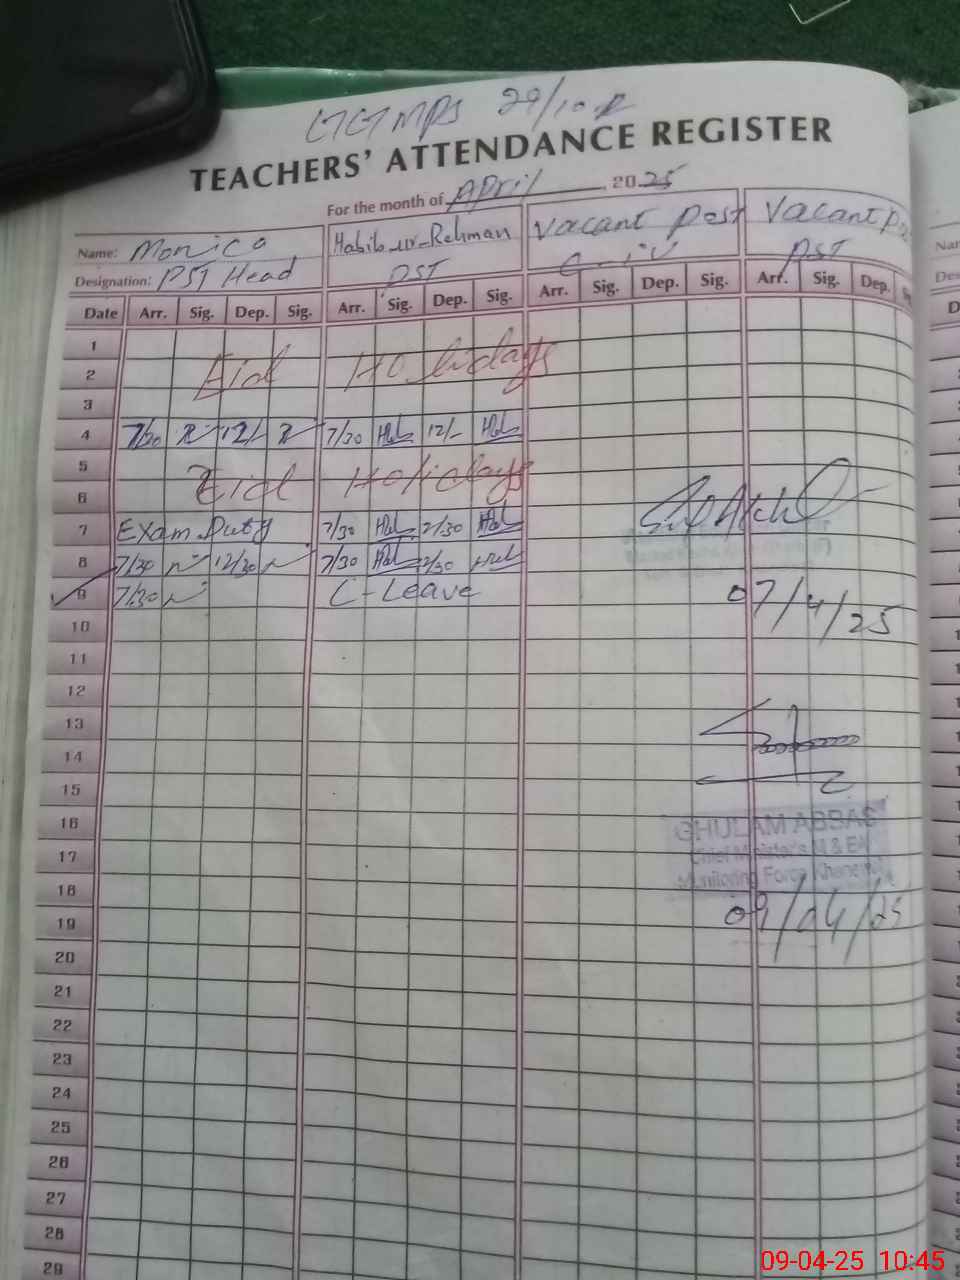 GGMPS 29/10R
TEACHERS' ATTENDANCE REGISTER
For the month of April 2025
Name: Monica Habib-ur-Rehman Vacant Post Vacant
Designation: PST Head PST PST
Date Arr. Sig. Dep. Sig. Arr. Sig. Dep. Sig. Arr. Sig. Dep. Sig. Arr. Sig. Dep.
1
2 Eid Holidays
3
4 7/30 12/- 7/30 12/-
5
6 Eid Holidays
7 Exam Duty 7/30 2/30
8 7/30 12/30 7/30 2/30
9 7/30 C-Leave
07/4/25
10
11
12
13
14
15
16
GHULAM ABBAS
17
Chief Minister's M & EA
Monitoring Force
18
19
09/04/25
20
21
22
23
24
25
26
27
28
29
09-04-25 10:45